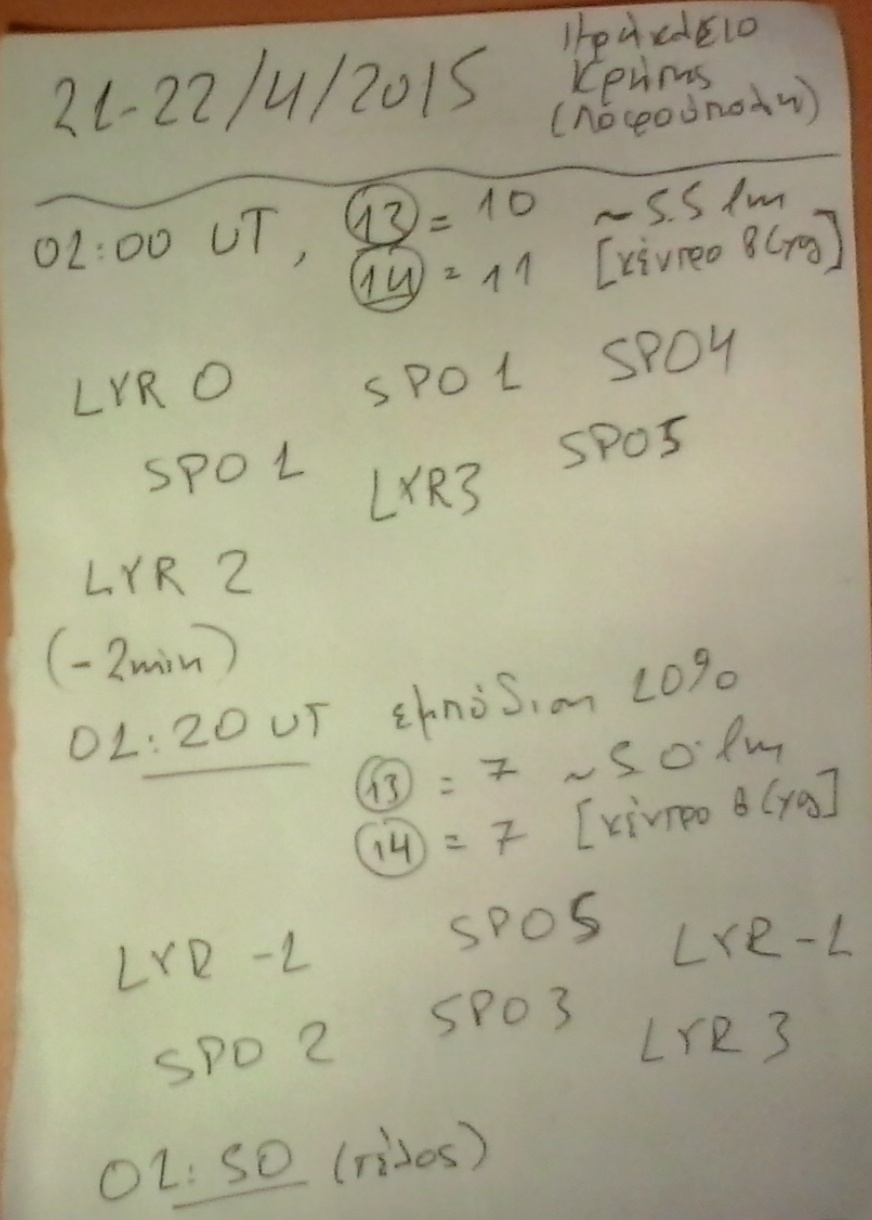 21-22/4/2015
Ηράκλειο
Κρήτης
(Λοφούπολη)
01:00 UT, 13 = 10 ~5.5 lm
14 = 11 [κέντρο Cyg]
LYR 0 SPO 1 SPO4
SPO 1 LYR3 SPO5
LYR 2
(-2min)
01:20 UT εμπόδια 10%
13 = 7 ~5.0 lm
14 = 7 [κέντρο Cyg]
LYR -1 SPO5 LYR-1
SPO 2 SPO 3 LYR 3
01:50 (τέλος)